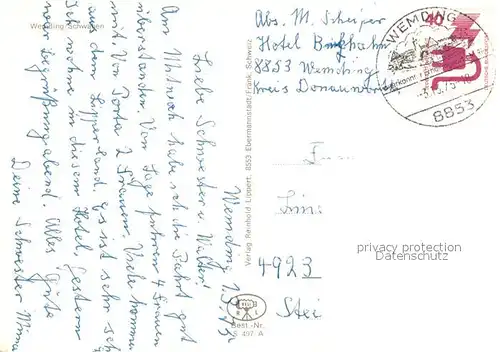 Wemding/Schwaben
Wemding, 1.5.75
Liebe Schwester u. Walter!
Am Mittwoch habe ich die Fahrt gut
überstanden. Von Lage fuhren 4 Frauen
mit. Von Porta 2 Frauen. Viele kommen
aus dem Lipperland. Es ist sehr sch
Ich wohne in diesem Hotel. Gestern
war Begrüßungsabend. Alles Gute
Deine Schwester Minna
Verlag Reinhold Lippert, 8553 Ebermannstadt, Fränk. Schweiz
Best.-Nr.
S 497 A
Abs. M. Scheiper
Hotel
8853 Wemding
Kreis Donauwörth
40
WEMDING
8853
4923
privacy protection
Datenschutz